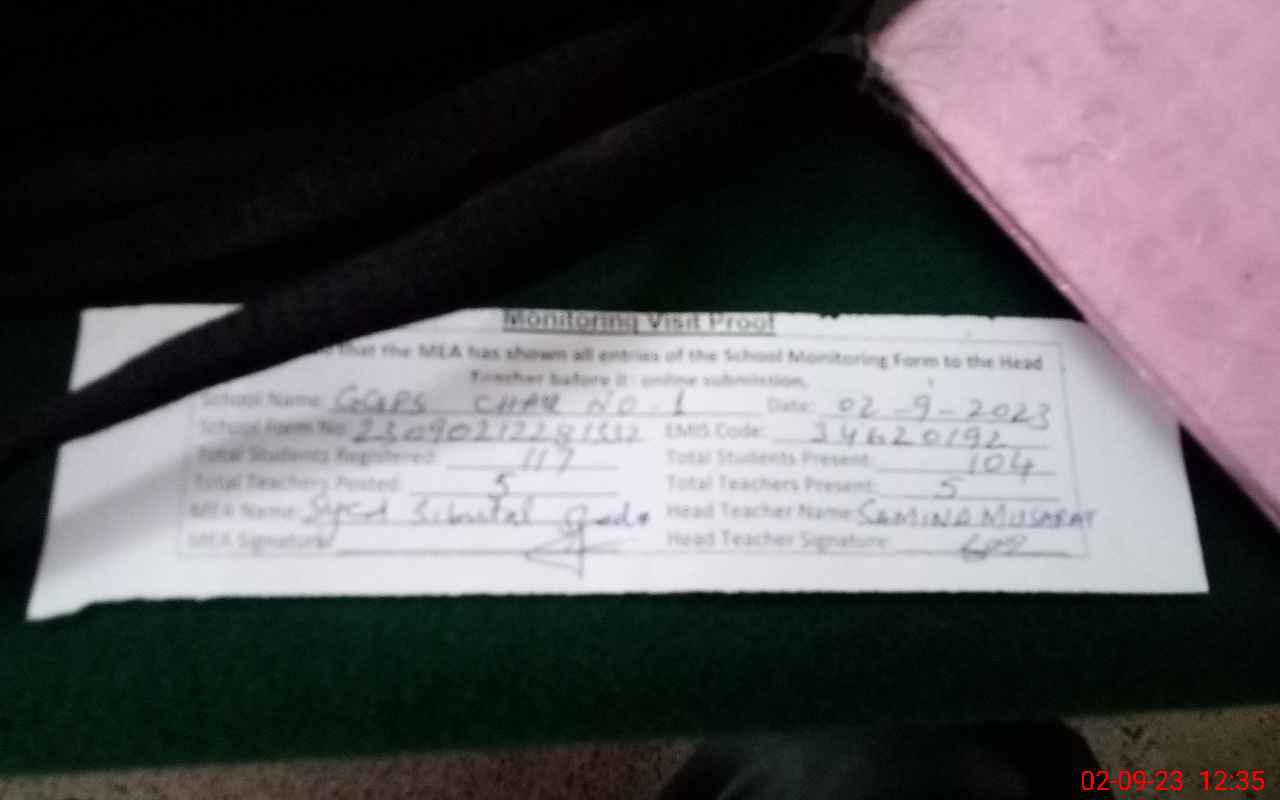 Monitoring Visit Proof
that the MEA has shown all entries of the School Monitoring Form to the Head
Teacher before it online submission.
School Name: GGPS CHAK NO. 1 Date: 02-9-2023
School Form No: EMIS Code: 34620192
Total Students Registered: 117 Total Students Present: 104
Total Teachers Posted: 5 Total Teachers Present: 5
MEA Name: Syed Head Teacher Name: SAMINA MUSARAT
MEA Signature: Head Teacher Signature:
02-09-23 12:35